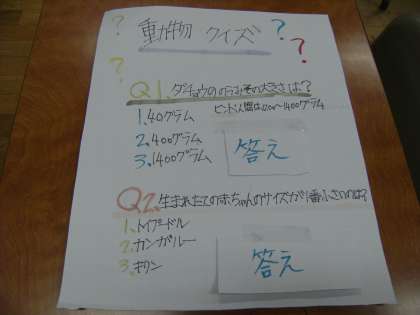 ? ? ? ?
動物 クイズ
Q1. ダチョウののうみその大きさは?
1. 40グラム ヒント:人間は1200〜1400グラム
2. 400グラム
3. 1400グラム
答え
Q2. 生まれたての赤ちゃんのサイズが1番小さいのは?
1. トイプードル
2. カンガルー
3. キリン
答え